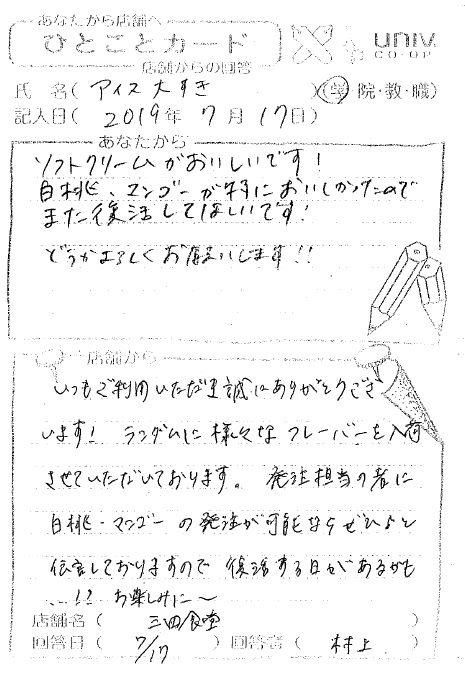 あなたから店舗へ
ひとことカード
店舗からの回答
univ.
CO-OP
氏 名 ( アイス大すき )(学・院・教・職)
記入日( 2019年 7月 17日)
あなたから
ソフトクリームがおいしいです!
白桃、マンゴーが特においしかったので
また復活してほしいです!
どうかよろしくお願いします!!
店舗から
いつもご利用いただき誠にありがとうござ
います! ランダムに様々なフレーバーを入荷
させていただいております。 発注担当の者に
白桃・マンゴーの発注が可能ならぜひと
伝言しておりますので 復活する日があるかも
...!? お楽しみに〜
店舗名( 三田食堂 )
回答日( 7/17 ) 回答者( 村上 )